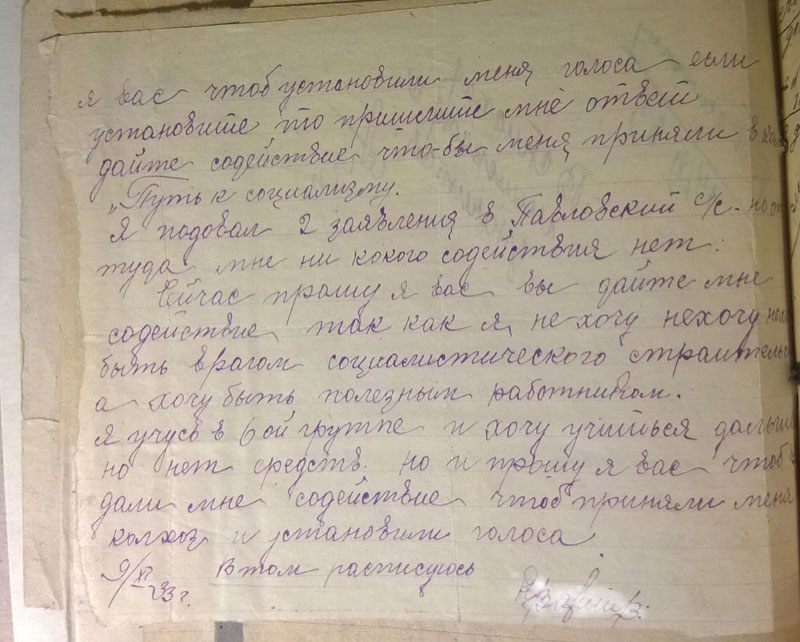 я вас чтоб установили меня голоса если
установите то пришлите мне ответ
дайте содействие что-бы меня приняли в
„Путь к социализму.
Я подовал 2 заявления в Павловский с/с. но от
туда мне ни кокого содействия нет.
Сейчас прошу я вас вы дайте мне
содействие так как я не хочу нехочу
быть врагом социалистического
а хочу быть полезным работником.
Я учусь в 6 ой группе и хочу учиться дальши
но нет средств. но и прошу я вас чтоб
дали мне содействие чтоб приняли меня
колхоз и установили голоса
9/XI-33 г. В том расписуюсь